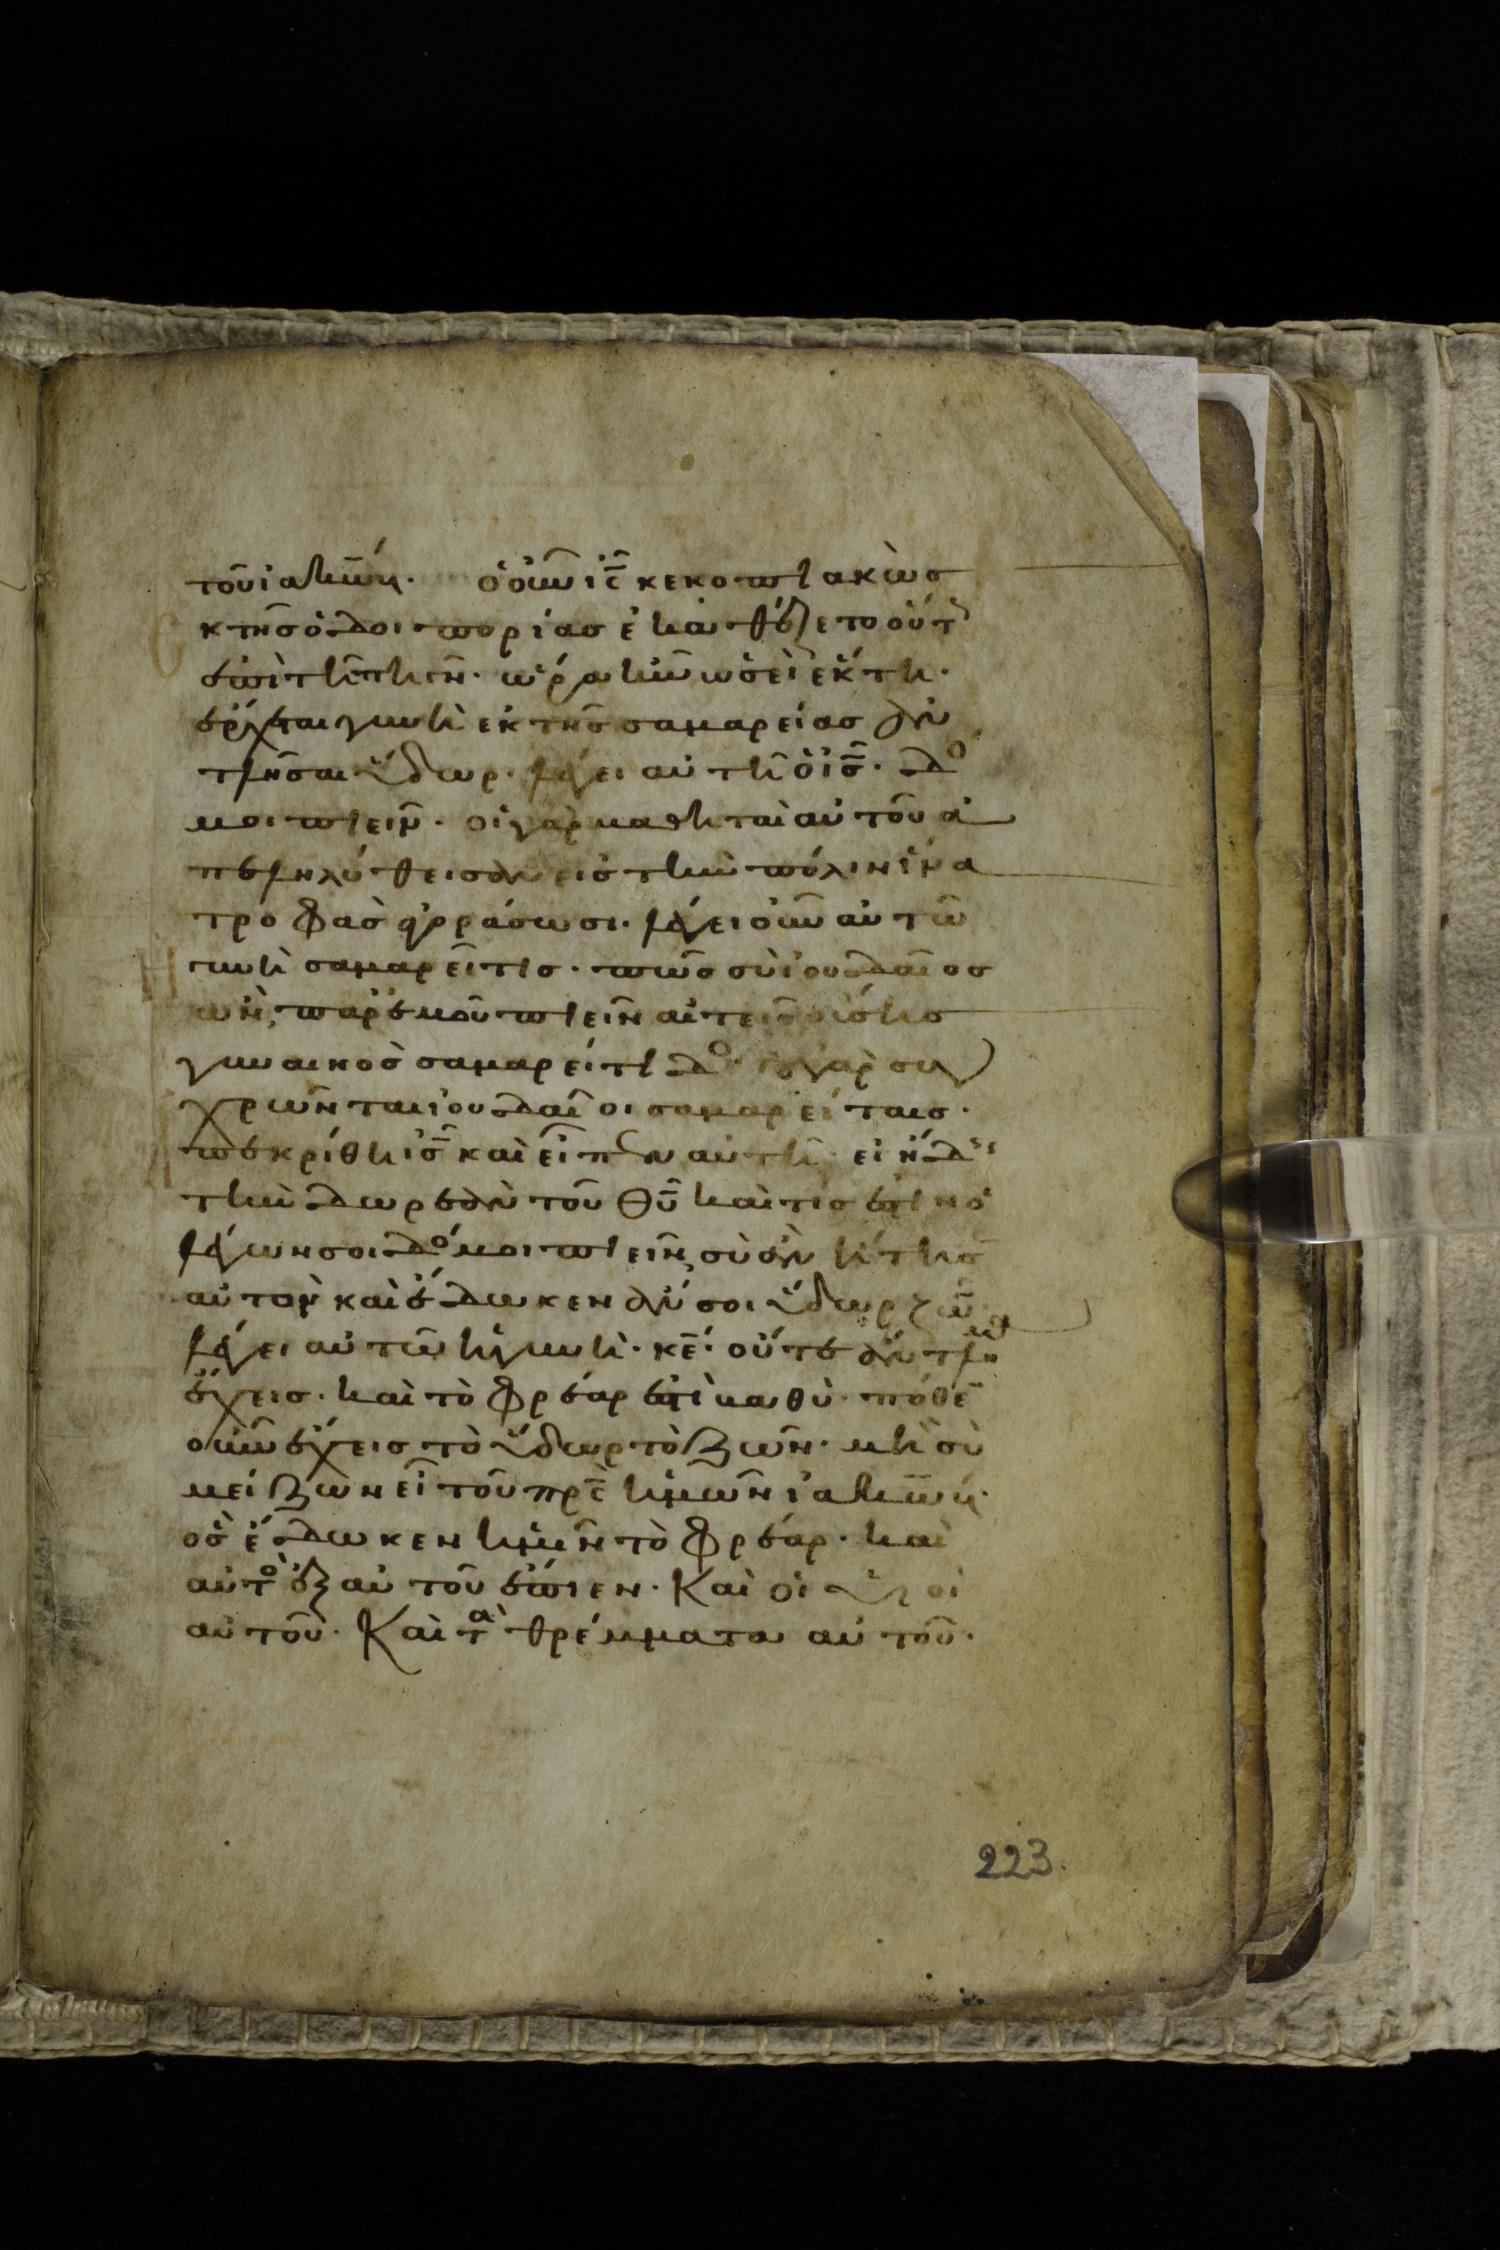 τοῦ ἰακώβ. ὁ οὖν ἰς̅ κεκοπιακὼς
ἐκ τῆς ὁδοιπορίας ἐκαθέζετο οὕτ
ἐπὶ τῆ πηγῆ. ὥρα ἦν ὡσεὶ ἕκτη.
ἔρχεται γυνὴ ἐκ τῆς σαμαρείας ἀν
τλῆσαι ὕδωρ. λέγει αὐτῆ ὁ ἰς̅. δό
μοι πιεῖν. οἱ γὰρ μαθηταὶ αὐτοῦ ἀ
πεληλύθεισαν εἰς τὴν πόλιν ἵνα
τροφὰς ἀγοράσωσι. λέγει οὖν αὐτῶ
γυνὴ σαμαρεῖτις. πῶς σὺ ἰουδαῖος
ὢν, παρ' ἐμοῦ πιεῖν αἰτεῖς οὔσης
γυναικὸς σαμαρείτιδο. οὐ γὰρ συγ
χρῶνται ἰουδαῖοι σαμαρείταις.
πεκρίθη ἰς̅ καὶ εἶπεν αὐτῆ. εἰ ἤδεις
τὴν δωρεὰν τοῦ θυ̅ καὶ τίς ἐστιν ὁ
λέγων σοι δός μοι πιεῖν, σὺ ἂν ἤτησ
αὐτὸν καὶ ἔδωκεν ἄν σοι ὕδωρ ζῶν
λέγει αὐτῶ ἡ γυνή. κε̅. οὔτε ἄντλημα
ἔχεις. καὶ τὸ φρέαρ ἐστὶ βαθύ. πόθε
οὖν ἔχεις τὸ ὕδωρ τὸ ζῶν. μὴ σὺ
μείζων εἶ τοῦ πρς̅ ἡμῶν ἰακώβ.
ὃς ἔδωκεν ἡμῖν τὸ φρέαρ. καὶ
αὐτὸ ἐξ αὐτοῦ ἔπιεν. Καὶ οἱ υἱοὶ
αὐτοῦ. Καὶ τὰ θρέμματα αὐτοῦ.
223.